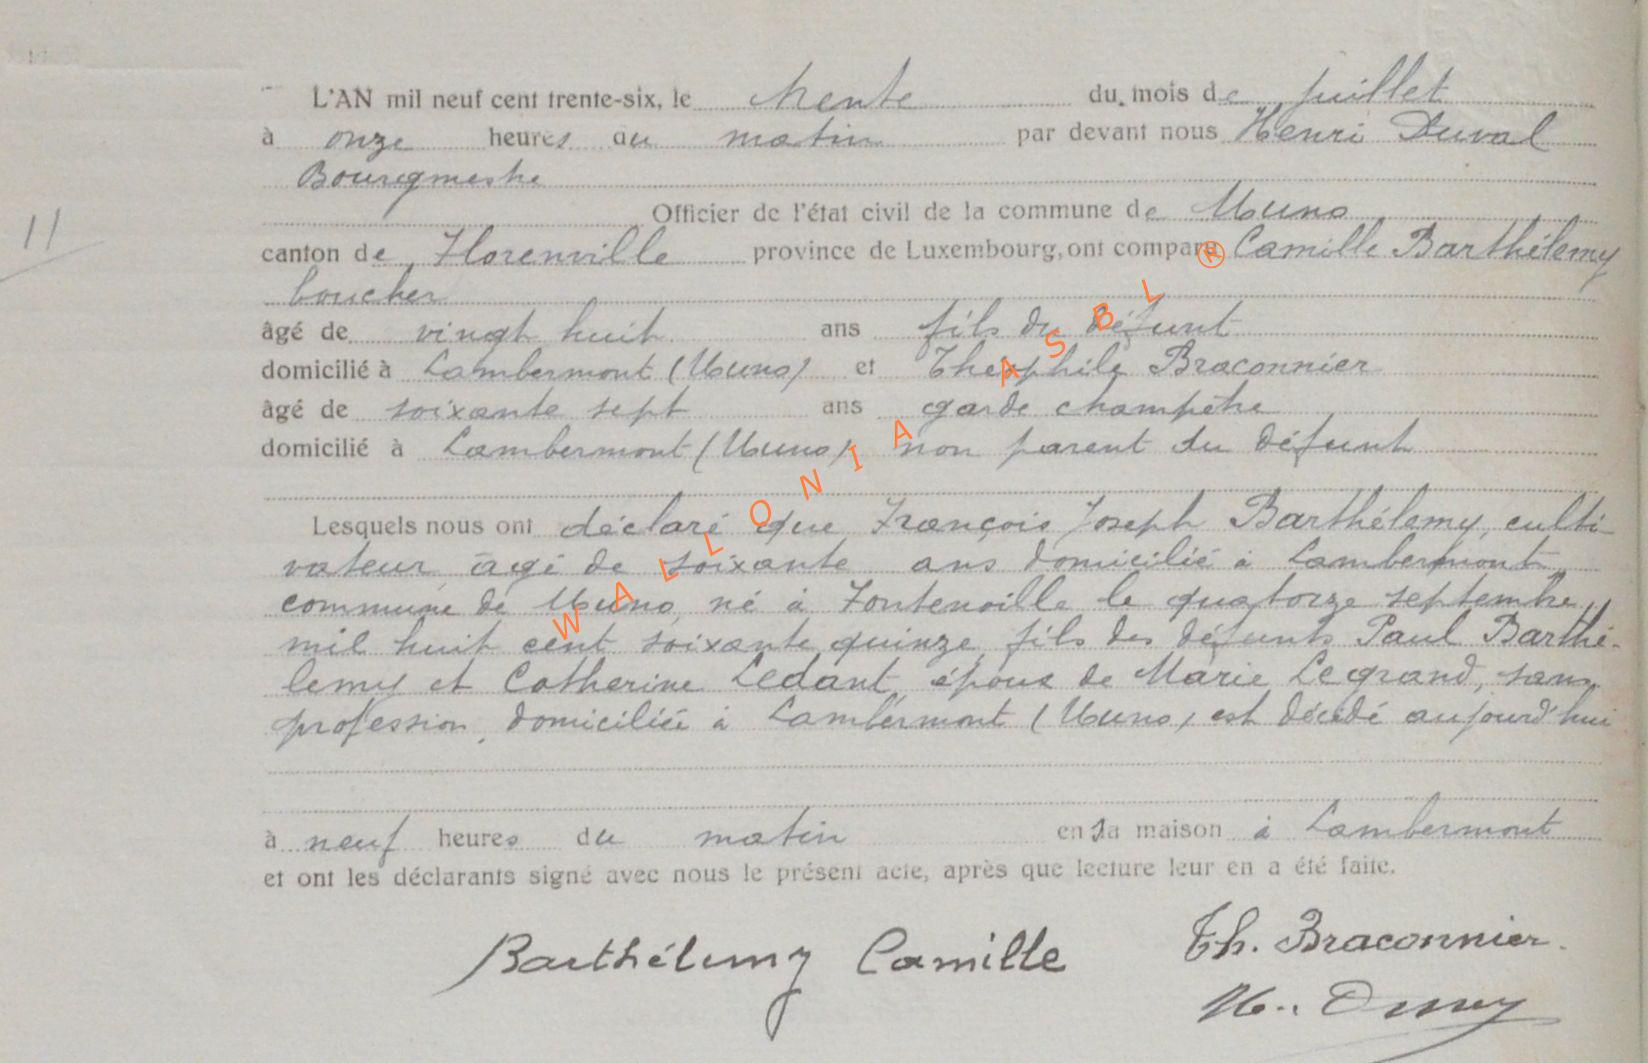 L'AN mil neuf cent trente-six, le trente du mois de juillet
à onze heures du matin par devant nous Henri Duval
Bourgmestre
Officier de l'état civil de la commune de Muno
11
canton de Florenville province de Luxembourg, ont comparu Camille Barthélemy
boucher
âgé de vingt huit ans fils du défunt
domicilié à Lambermont (Muno) et Théophile Braconnier
âgé de soixante sept ans garde champêtre
domicilié à Lambermont (Muno) non parent du défunt
Lesquels nous ont déclaré que François Joseph Barthélemy, culti
vateur, âgé de soixante ans domicilié à Lambermont
commune de Muno, né à Fontenoille le quatorze septembre
mil huit cent soixante quinze, fils des défunts Paul Barthé-
lemy et Catherine Ledant, époux de Marie Legrand, sans
profession, domiciliée à Lambermont (Muno) est décédé aujourd'hui
à neuf heures du matin en sa maison à Lambermont
et ont les déclarants signé avec nous le présent acte, après que lecture leur en a été faite.
Barthélemy Camille Th. Braconnier.
H. Duval
WALLONIA ASBL ®